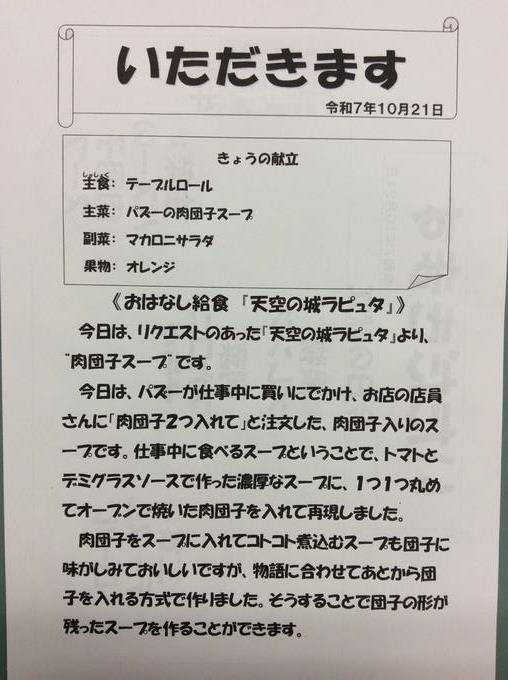 いただきます
令和7年10月21日
きょうの献立
しゅしょく
主食：テーブルロール
主菜：パズーの肉団子スープ
副菜：マカロニサラダ
果物：オレンジ
《おはなし給食『天空の城ラピュタ』》
今日は、リクエストのあった「天空の城ラピュタ」より、
"肉団子スープ"です。
今日は、パズーが仕事中に買いにでかけ、お店の店員
さんに「肉団子2つ入れて」と注文した、肉団子入りのス
ープです。仕事中に食べるスープということで、トマトと
デミグラスソースで作った濃厚なスープに、1つ1つ丸め
てオーブンで焼いた肉団子を入れて再現しました。
肉団子をスープに入れてコトコト煮込むスープも団子に
味がしみておいしいですが、物語に合わせてあとから団
子を入れる方式で作りました。そうすることで団子の形が
残ったスープを作ることができます。